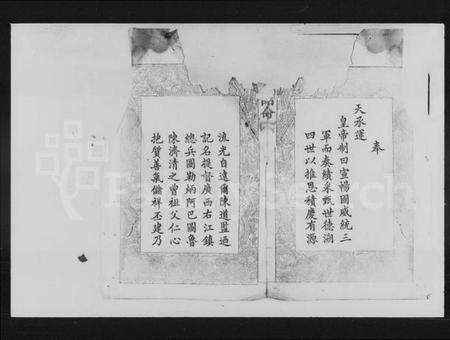 奉
天承運
皇帝制曰宣揚國威統三
軍而奏績采甄世德溯
四世以推恩積慶有源
誥命
流光自遠爾陳道盟迺
記名提督廣西右江鎮
總兵圖勒炳阿巴圖魯
陳濟清之曾祖父仁心
抱質善氣儲祥丕建乃